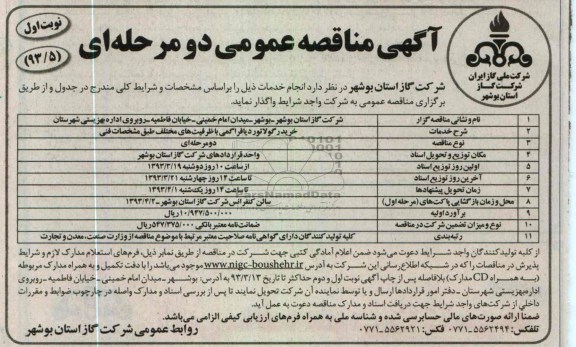 نوبت اول
(۹۳/۵)
آگهی مناقصه عمومی دو مرحله‌ای
شرکت ملی گاز ایران
شرکت گاز
استان بوشهر
شرکت گاز استان بوشهر در نظر دارد انجام خدمات ذیل را براساس مشخصات و شرایط کلی مندرج در جدول و از طریق
برگزاری مناقصه عمومی به شرکت واجد شرایط واگذار نماید.
۱ نام و نشانی مناقصه گزار شرکت گاز استان بوشهر-بوشهر-میدان امام خمینی-خیابان فاطمیه-روبروی اداره بهزیستی شهرستان
۲ شرح خدمات خرید رگولاتور دیافراگمی با ظرفیت‌های مختلف طبق مشخصات فنی
۳ نوع مناقصه دو مرحله‌ای
۴ مکان توزیع و تحویل اسناد واحد قراردادهای شرکت گاز استان بوشهر
۵ اولین روز توزیع اسناد از ساعت ۱۰ روز دوشنبه ۱۳۹۳/۳/۱۹
۶ آخرین روز توزیع اسناد تا ساعت ۱۴ روز چهارشنبه ۱۳۹۳/۳/۲۱
۷ زمان تحویل پیشنهادها تا ساعت ۱۴ روز یکشنبه ۱۳۹۳/۴/۱
۸ محل و زمان بازگشایی پاکت‌های (مرحله اول) سالن کنفرانس شرکت گاز استان بوشهر-۱۳۹۳/۴/۲
۹ برآورد اولیه ۱۰/۹۴۷/۵۰۰/۰۰۰ ریال
۱۰ نوع و میزان تضمین شرکت در مناقصه ضمانت‌نامه معتبر بانکی ۵۴۷/۳۷۵/۰۰۰ ریال
۱۱ رتبه‌بندی کلیه تولیدکنندگان دارای گواهی‌نامه صلاحیت معتبر مرتبط با موضوع مناقصه از وزارت صنعت، معدن و تجارت
از کلیه تولیدکنندگان واجد شرایط دعوت می‌شود ضمن اعلام آمادگی کتبی جهت شرکت در مناقصه از طریق نمابر ذیل، فرم‌های استعلام مدارک لازم و شرایط
پذیرش در مناقصات را که در شبکه اطلاع‌رسانی این شرکت به آدرس www.nigc-boushehr.ir موجود می‌باشد را با دقت تکمیل و به همراه مدارک مربوطه
(بسه همراه CD مدارک) بلافاصله پس از چاپ آگهی نوبت اول و دوم حداکثر تا تاریخ ۹۳/۳/۱۳ به آدرس: بوشهر-میدان امام خمینی-خیابان فاطمیه-روبروی
اداره بهزیستی شهرستان-دفتر امور قراردادها ارسال و یا توسط نماینده آن شرکت تحویل نمایند تا پس از بررسی اسناد و مدارک واصله در چارچوب ضوابط و مقررات
داخلی از شرکت‌های واجد شرایط جهت دریافت اسناد و مدارک مناقصه دعوت به عمل آید.
ضمنا ارائه صورت‌های مالی حسابرسی شده و شناسه ملی به همراه فرم‌های ارزیابی کیفی الزامی می‌باشد.
تلفن: ۵۵۶۲۴۹۴-۰۷۷۱ فکس: ۵۵۶۲۹۲۱-۰۷۷۱
روابط عمومی شرکت گاز استان بوشهر
ParsNamadData